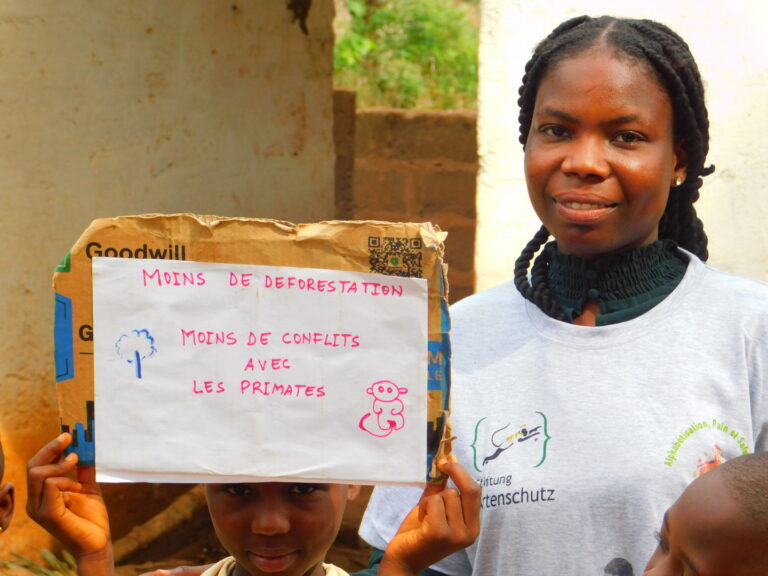 Goodwill
MOINS DE DEFORESTATION
MOINS DE CONFLITS
AVEC
LES PRIMATES
Stiftung
Artenschutz
Alphabétisation, Pain et